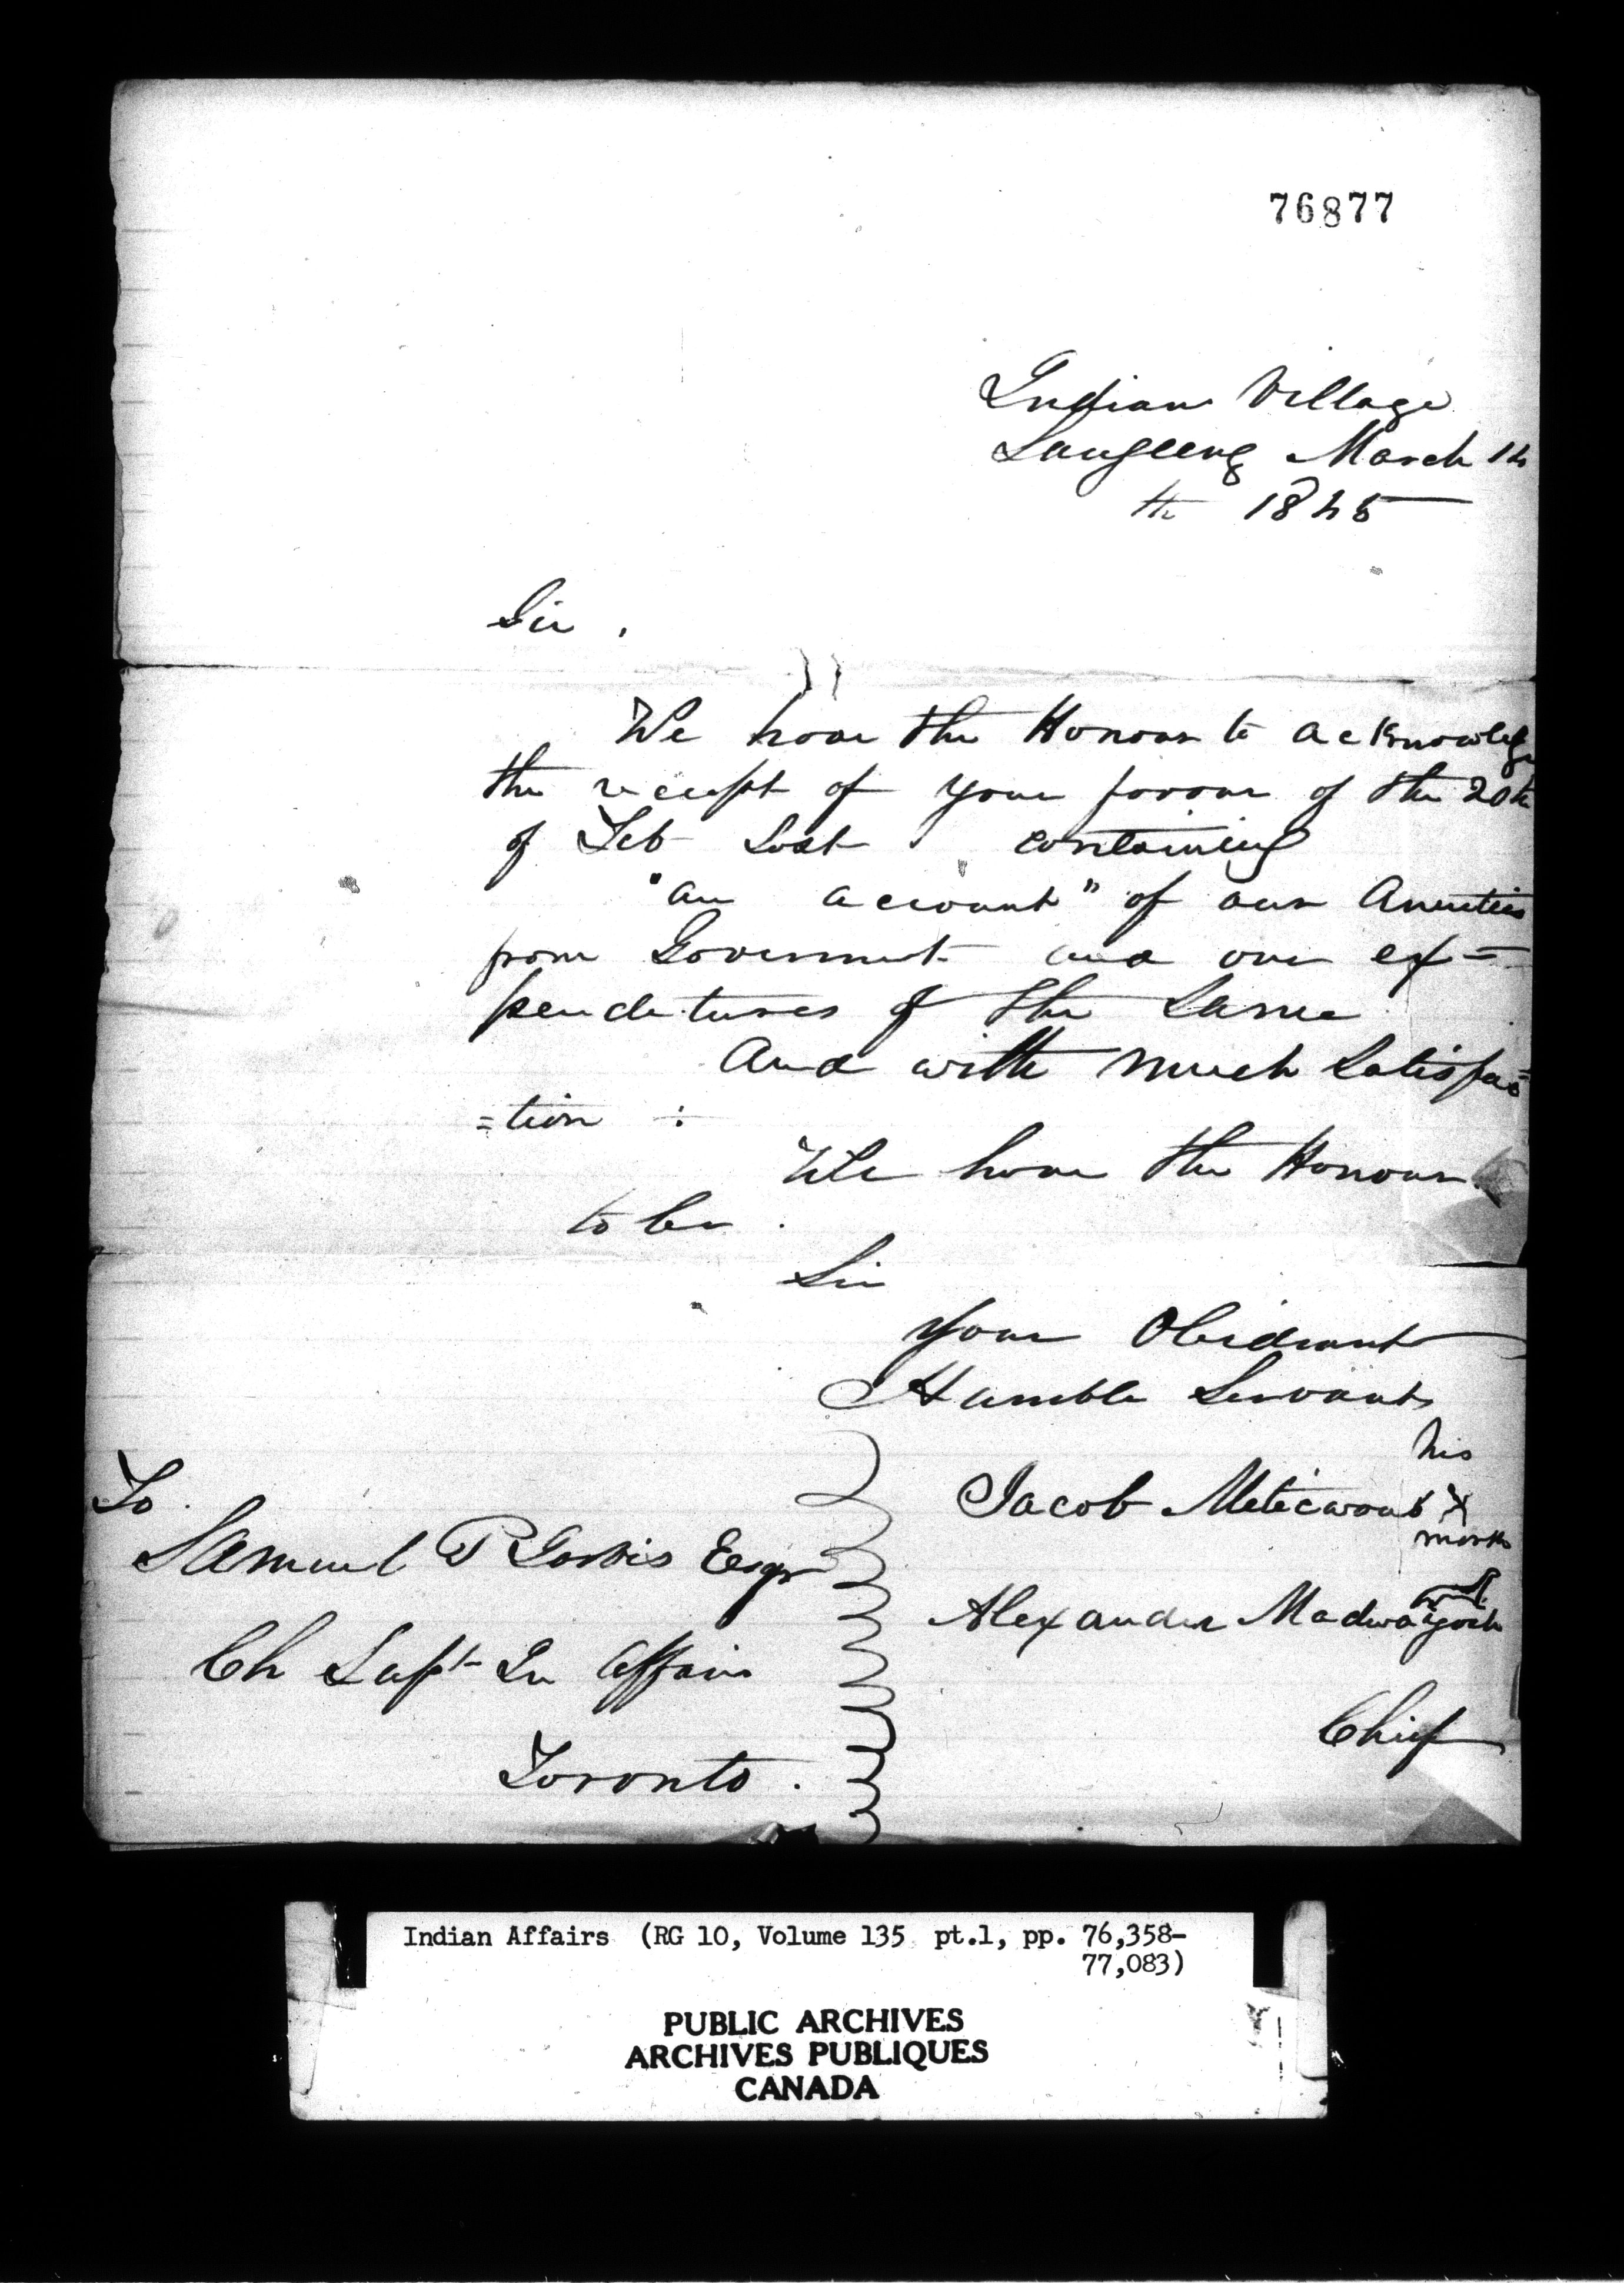 76877
Indian Village
Saugeeng March 14
th 1845
Sir,
We have the Honour to acknowledge
the receipt of your favour of the 20th
of Feb last containing
"an account" of our Anuities
from Goverment and our ex=
penditures of the same
And with much satisfac=
=tion :
We have the Honour
to be.
Sir
Your Obidiant
Humble Servants
his
Jacob Meticwoub X
mark
Alexander
Chief
To
Samuel P Jarvis Esqr
Ch Supt In Affairs
Toronto.
Indian Affairs (RG 10, Volume 135 pt.1, pp. 76,358-
77,083)
PUBLIC ARCHIVES
ARCHIVES PUBLIQUES
CANADA